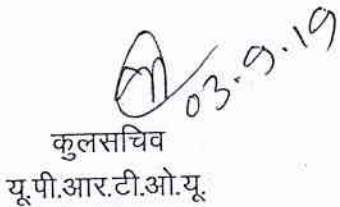 03.9.19
कुलसचिव
यू.पी.आर.टी.ओ.यू.